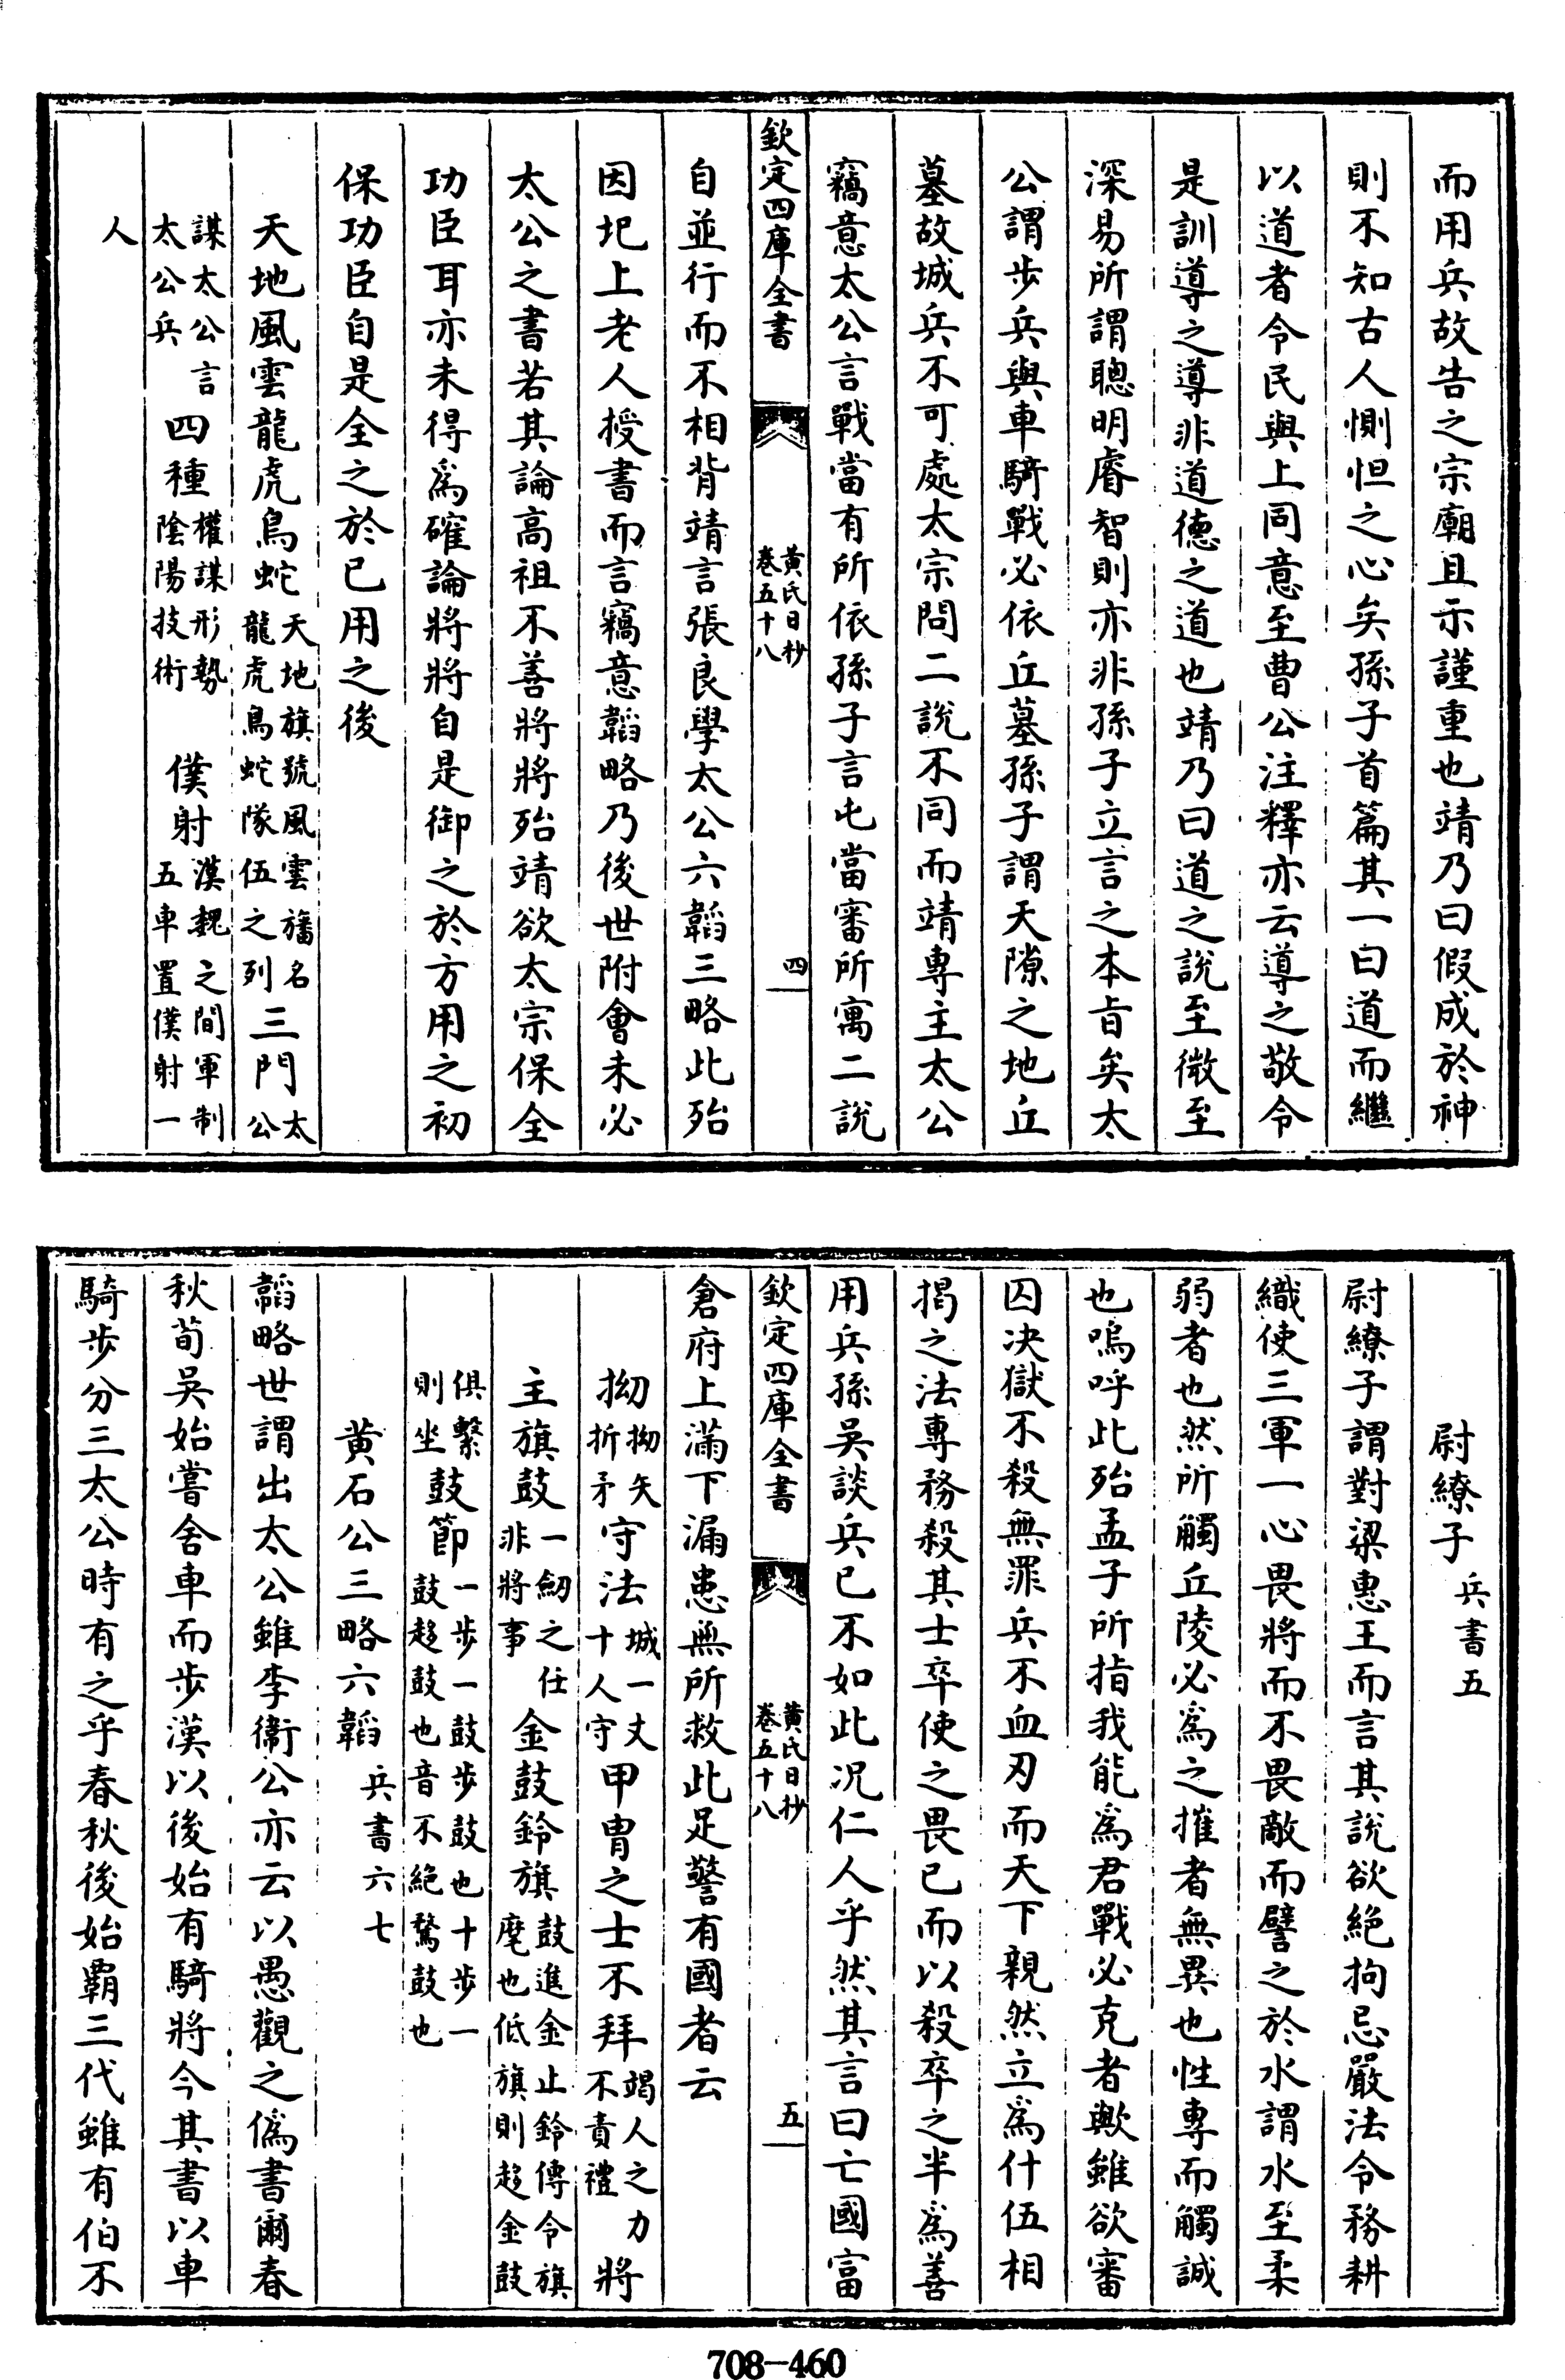 而用兵故告之宗廟且示謹重也靖乃曰假成於神
則不知古人惻怛之心矣孫子首篇其一曰道而繼
以道者令民與上同意至曹公注釋亦云導之敬令
是訓導之導非道德之道也靖乃曰道之說至微至
深易所謂聰明睿智則亦非孫子立言之本旨矣太
公謂步兵與車騎戰必依丘墓孫子謂天隙之地丘
墓故城兵不可處太宗問二說不同而靖專主太公
竊意太公言戰當有所依孫子言屯當審所寓二說
欽定四庫全書
黃氏日抄
卷五十八
四
自並行而不相背靖言張良學太公六韜三略此殆
因圯上老人授書而言竊意韜略乃後世附會未必
太公之書若其論高祖不善將將殆靖欲太宗保全
功臣耳亦未得為確論將將自是御之於方用之初
保功臣自是全之於已用之後
天地風雲龍虎鳥蛇天地旗號風雲旛名龍虎鳥蛇隊伍之列三門太公
謀太公言太公兵四種權謀形勢陰陽技術僕射漢魏之間軍制五車置僕射一
人
尉繚子兵書五
尉繚子謂對梁惠王而言其說欲絶拘忌嚴法令務耕
織使三軍一心畏將而不畏敵而譬之於水謂水至柔
弱者也然所觸丘陵必為之摧者無異也性專而觸誠
也嗚呼此殆孟子所指我能為君戰必克者歟雖欲審
囚决獄不殺無罪兵不血刃而天下親然立為什伍相
揭之法專務殺其士卒使之畏已而以殺卒之半為善
用兵孫吳談兵已不如此况仁人乎然其言曰亡國富
欽定四庫全書
黃氏日抄
卷五十八
五
倉府上滿下漏患無所救此足警有國者云
拗拗矢折矛守法城一丈十人守甲冑之士不拜竭人之力不責禮將
主旗鼓一劒之任非將事金鼓鈴旗鼓進金止鈴傳令旗麾也低旗則趍金鼓
俱繫則坐鼓節一步一鼓步鼓也十步一鼓趍鼓也音不絶騖鼓也
黃石公三略六韜兵書六七
韜略世謂出太公雖李衞公亦云以愚觀之僞書爾春
秋荀吳始嘗舍車而步漢以後始有騎將今其書以車
騎步分三太公時有之乎春秋後始覇三代雖有伯不
708-460